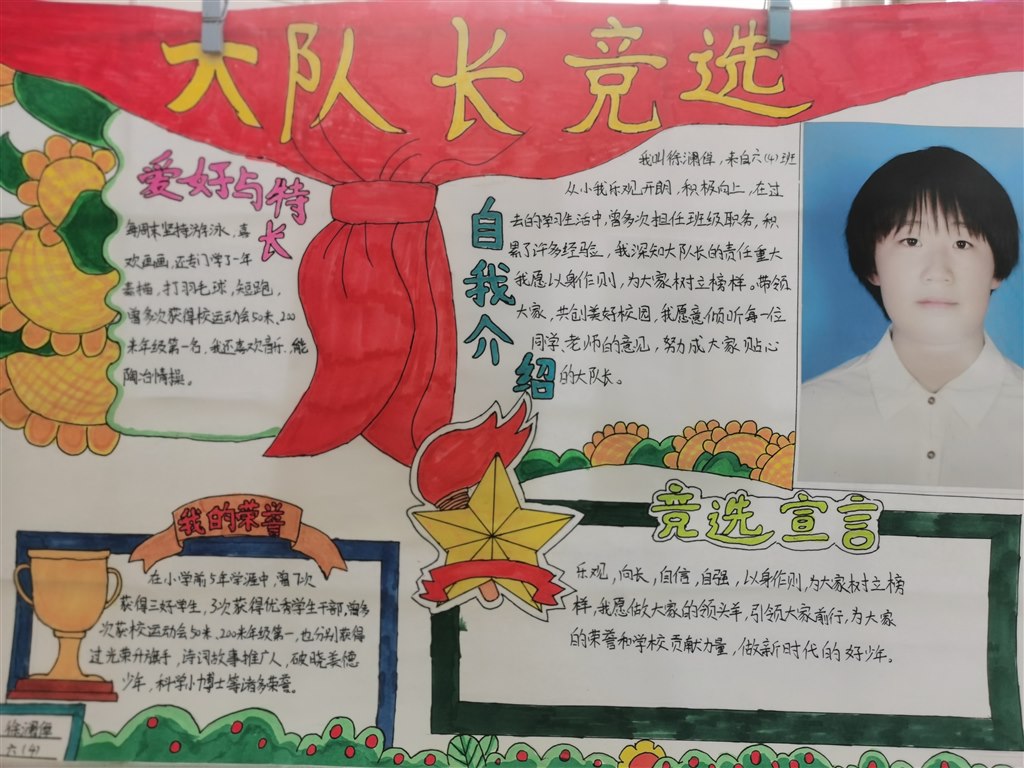 大队长竞选
爱好与特长
每周末坚持游泳、喜
欢画画,还专门学了一年
素描,打羽毛球,短跑,
曾多次获得校运动会50米、200
米年级第一名,我还喜欢音乐,能
陶冶情操。
自我介绍
我叫徐澜倬,来自六(4)班
从小我乐观开朗,积极向上,在过
去的学习生活中,曾多次担任班级职务,积
累了许多经验,我深知大队长的责任重大
我愿以身作则,为大家树立榜样。带领
大家,共创美好校园,我愿意倾听每一位
同学、老师的意见,努力成大家贴心
的大队长。
我的荣誉
在小学前5年学涯中,曾7次
获得三好学生,3次获得优秀学生干部,曾多
次获校运动会50米、200米年级第一,也分别获得
过光荣升旗手,诗词故事推广人,破晓美德
少年,科学小博士等诸多荣誉。
竞选宣言
乐观,向长,自信,自强,以身作则,为大家树立榜
样,我愿做大家的领头羊,引领大家前行,为大家
的荣誉和学校贡献力量,做新时代的好少年。
徐澜倬
六(4)